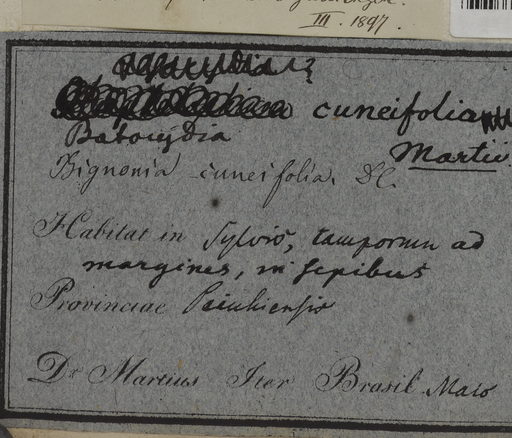 III. 1897.
cuneifolia
Batocydia
Martii.
Bignonia cuneifolia. DC.
Habitat in Sylvis, camporum ad
margines, in sepibus
Provinciae Piauhiensis
Dr Martius Iter Brasil Majo